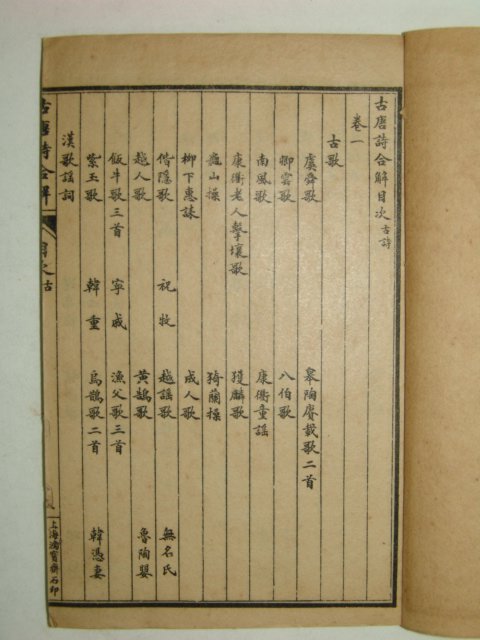 古唐詩合解目次 古詩
卷一
古歌
虞舜歌 皋陶賡載歌二首
卿雲歌 八伯歌
南風歌 康衢童謠
康衢老人擊壤歌 獲麟歌
龜山操 猗蘭操
柳下惠誄 成人歌
偕隱歌 祝牧 越謠歌 無名氏
越人歌 黃鵠歌 魯陶嬰
飯牛歌三首 寧戚 漁父歌三首
紫玉歌 韓重 烏鵲歌二首 韓憑妻
漢歌謠詞
古唐詩合解
上海鴻寶齋石印